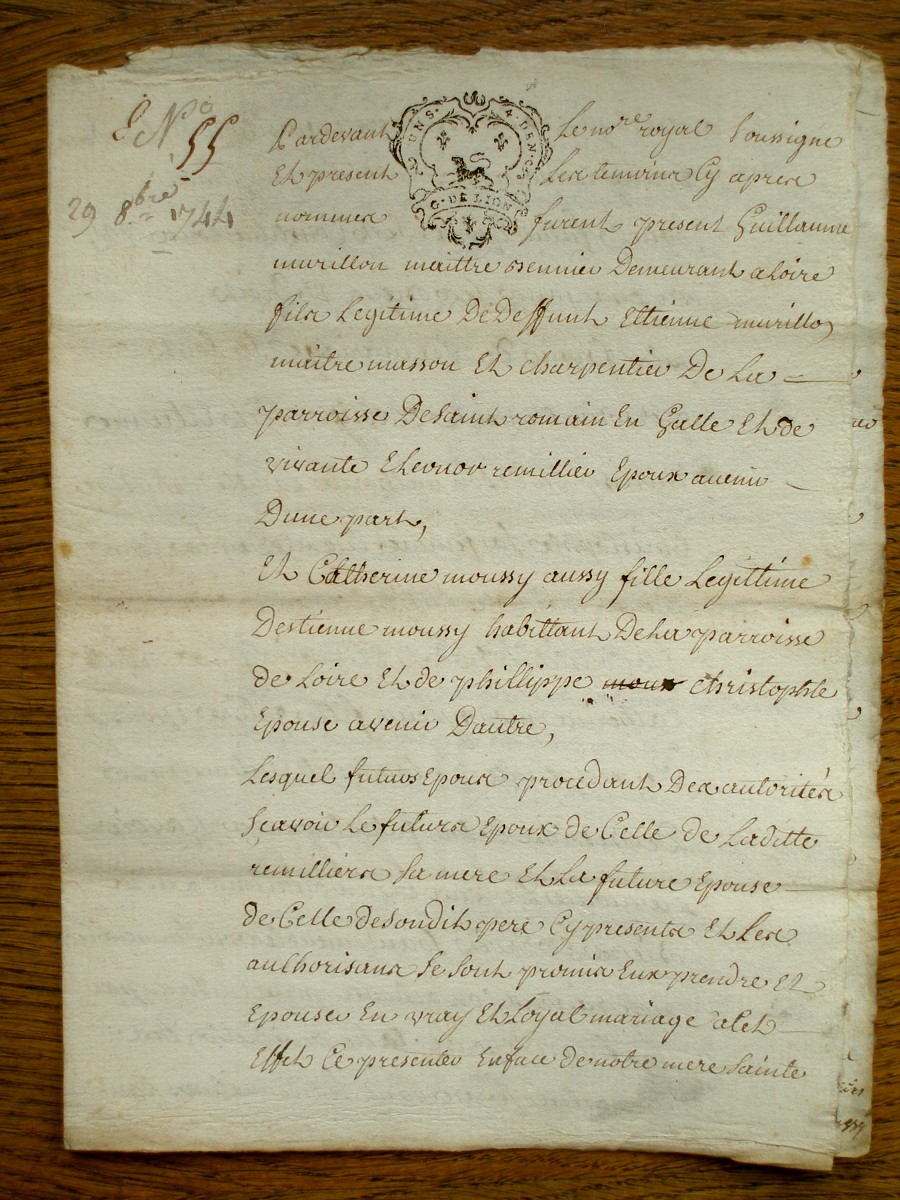 E No 55
29 8bre 1744
UNS. 4. DEN. G. DE LION
Pardevant Le nore royal soussigne
Et present Les temoins Cy apres
nommes furent present Guillaume
murillon maittre Demeurant a loire
fils Legitime De Deffunt Ettienne murillon
maitre masson Et charpentier De La
parroisse De Saint romain En Galle Et de
vivante Eleonor remillier Epoux avenir
Dune part,
Et Catherine moussy aussy fille Legittime
Destienne moussy habittant De La parroisse
de Loire Et de phillippe christophle
Epouse avenir Dautre,
Lesquel futurs Epoux procedant Des autorités
Scavoir Le futurs Epoux de Celle de Laditte
remilliers sa mere Et La future Epouse
de Celle de Sondit pere Cy presents Et Les
authorisans se sont promis Eux prendre Et
Epouser En vray Et Loyal mariage a Cet
Effet Ce presenter Enface de notre mere sainte